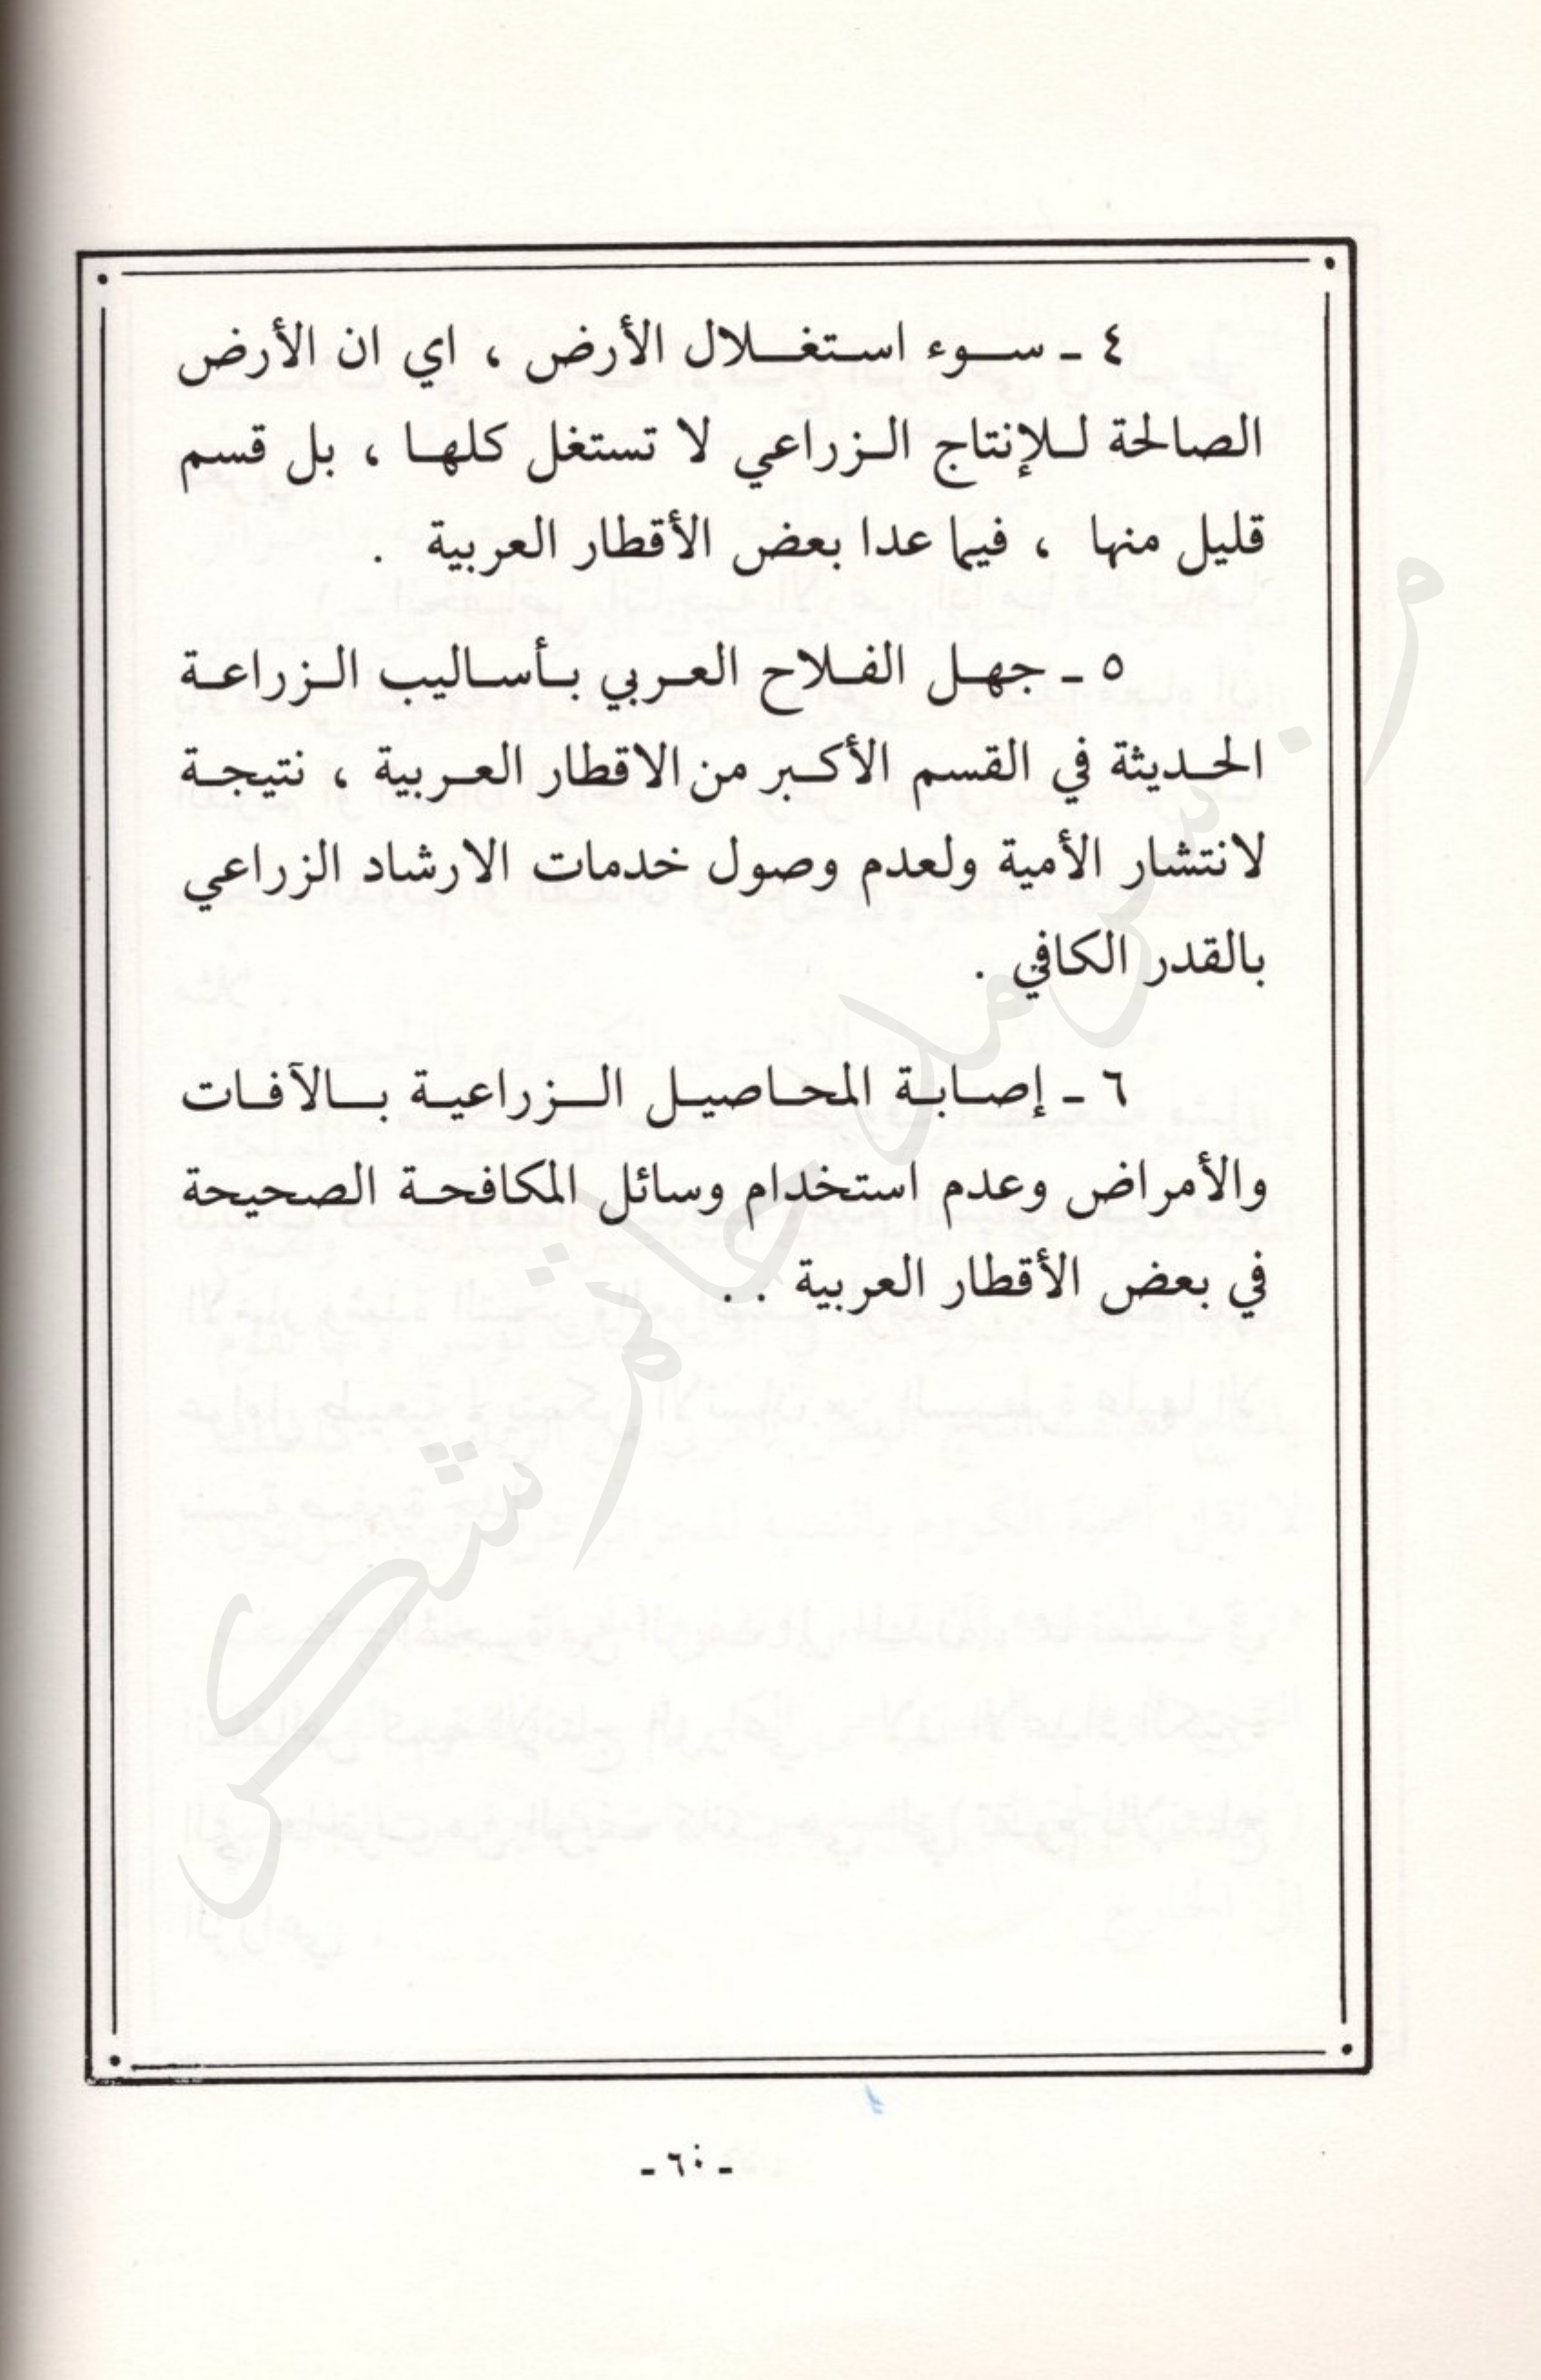 ٤ ـ سوء استغلال الأرض ، اي ان الأرض
الصالحة للإنتاج الزراعي لا تستغل كلها ، بل قسم
قليل منها ، فيما عدا بعض الأقطار العربية .
٥ ـ جهل الفلاح العربي بأساليب الزراعة
الحديثة في القسم الأكبر من الاقطار العربية ، نتيجة
لانتشار الأمية ولعدم وصول خدمات الارشاد الزراعي
بالقدر الكافي .
٦ ـ إصابة المحاصيل الزراعية بالآفات
والأمراض وعدم استخدام وسائل المكافحة الصحيحة
في بعض الأقطار العربية . .
ـ ٦٠ ـ